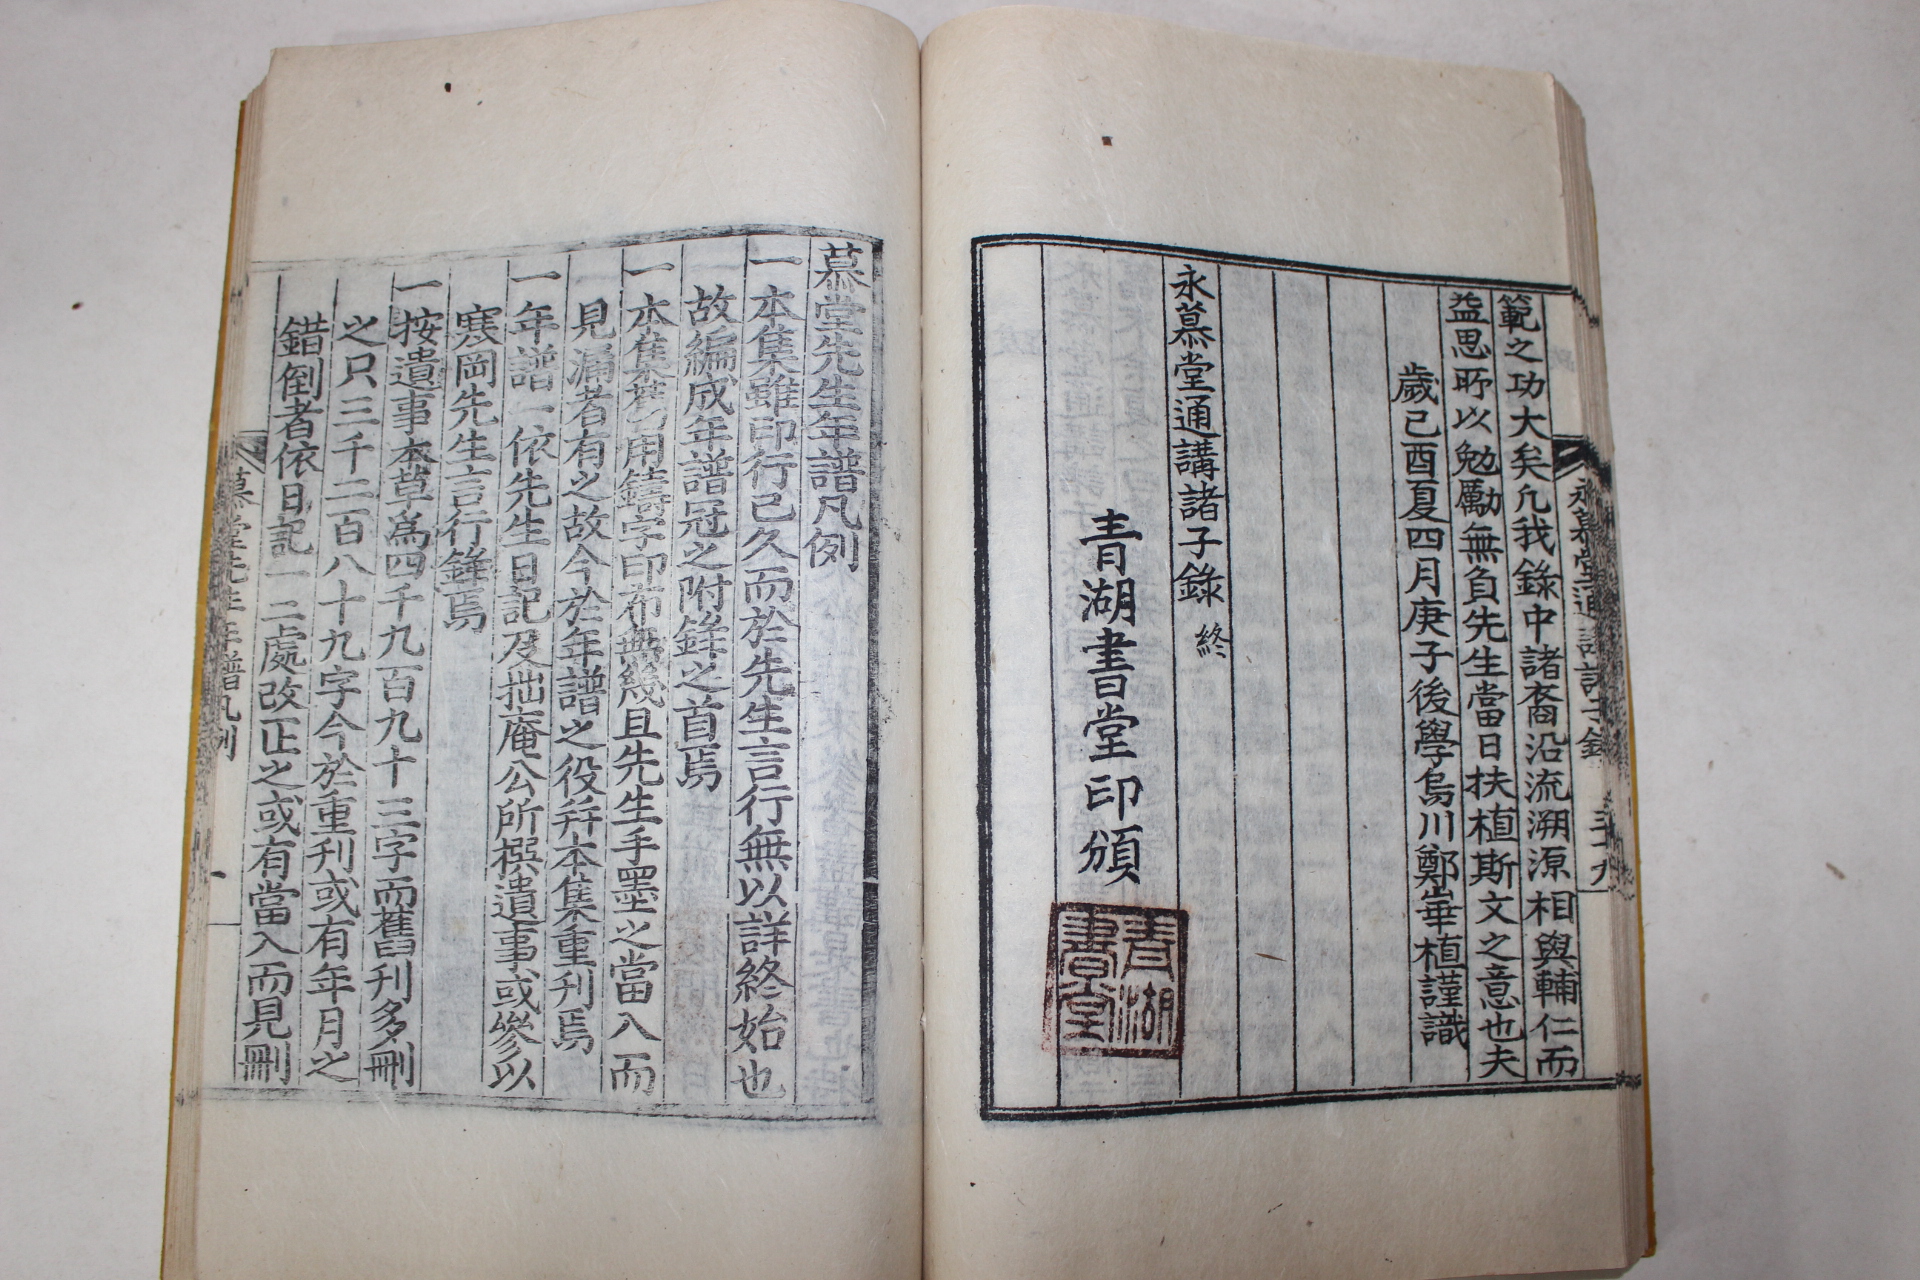 範之功大矣凡我錄中諸裔沿流溯源相與輔仁而
益思所以勉勵無負先生當日扶植斯文之意也夫
歲己酉夏四月庚子後學烏川鄭崋植謹識
永慕堂通講諸子錄 終
青湖書堂印頒
青湖
書堂
永慕堂通講諸子錄 三十九
慕堂先生年譜凡例
一本集雖印行已久而於先生言行無以詳終始也
故編成年譜冠之附錄之首焉
一本集舊用鑄字印布無幾且先生手墨之當入而
見漏者有之故今於年譜之役幷本集重刋焉
一年譜一依先生日記及拙庵公所撰遺事或參以
寒岡先生言行錄焉
一按遺事本草爲四千九百九十三字而舊刋多刪
之只三千二百八十九字今於重刋或有年月之
錯倒者依日記一二處改正之或有當入而見刪
慕堂先生年譜凡例 一